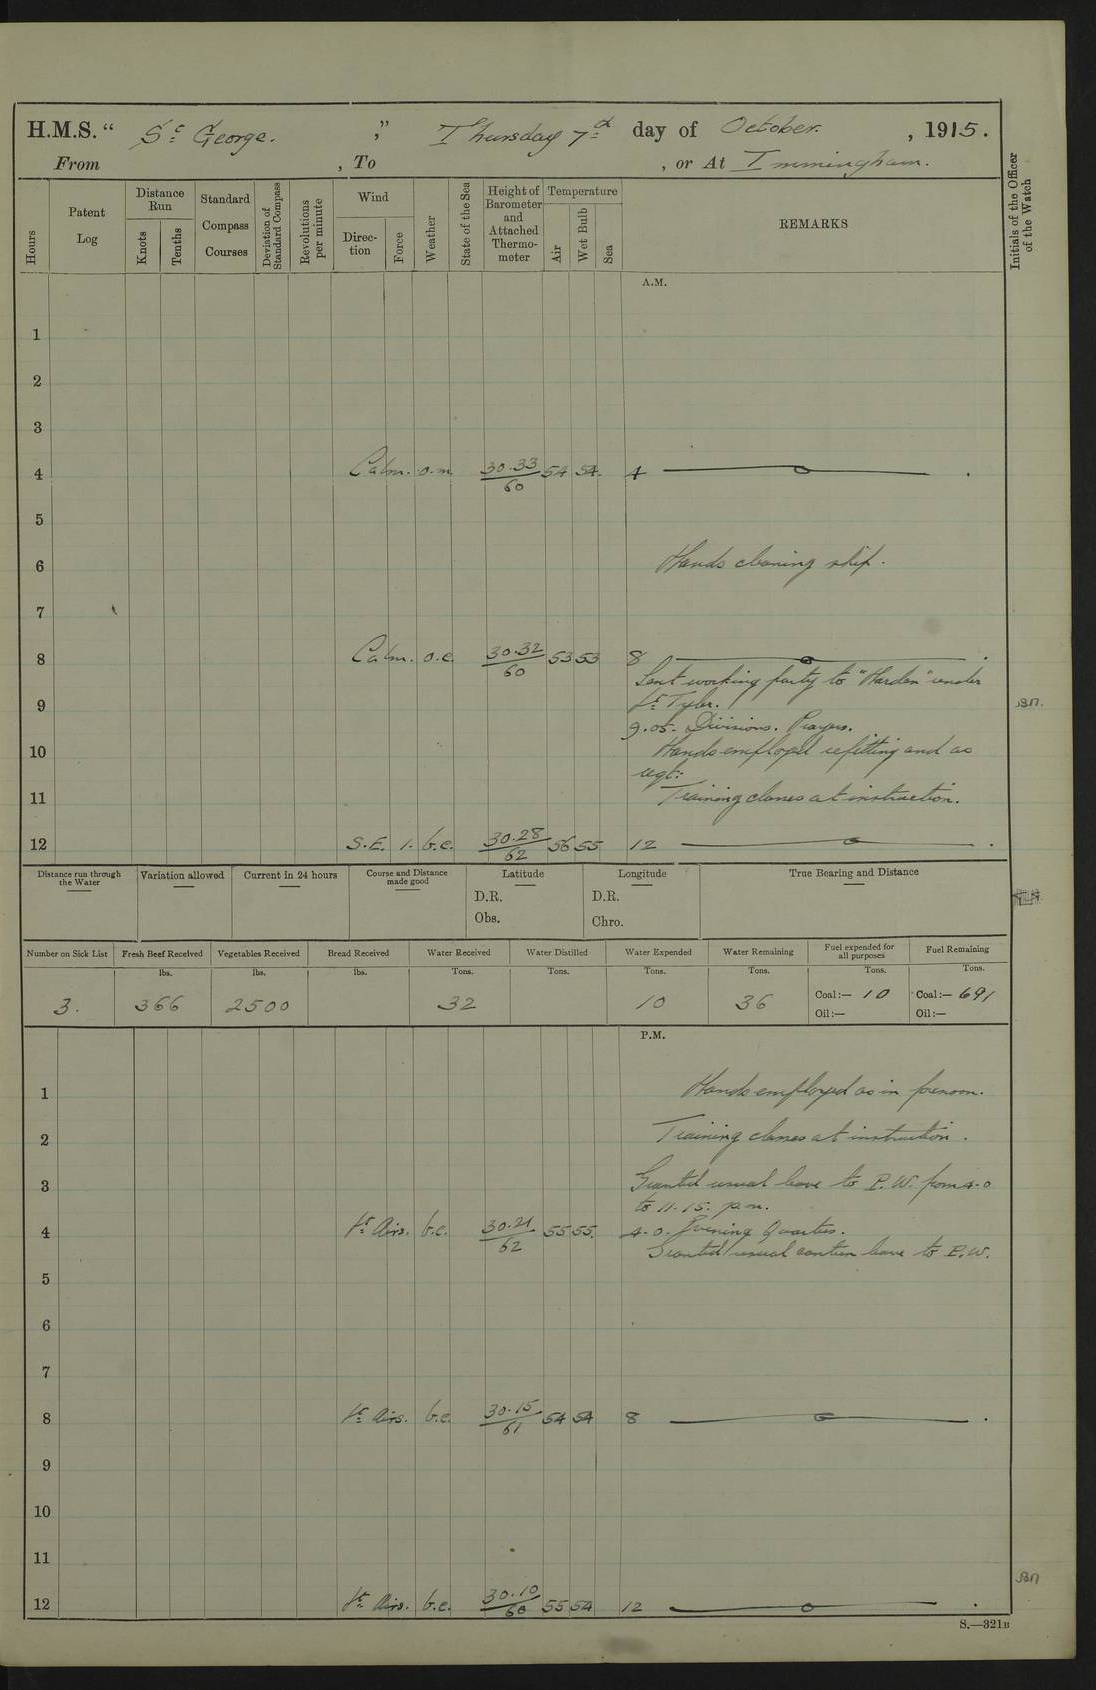 H.M.S. " St George. ", Thursday 7th day of October. , 1915.
From , To , or At Immingham.
Hours
Patent Log
Distance Run
Knots
Tenths
Standard Compass Courses
Deviation of Standard Compass
Revolutions per minute
Wind
Direction
Force
Weather
State of the Sea
Height of Barometer and Attached Thermometer
Temperature
Air
Wet Bulb
Sea
REMARKS
Initials of the Officer of the Watch
A.M.
1
2
3
4 Calm. o.m. 30.33/60 54 54. 4
5
6 Hands cleaning ship.
7
8 Calm. o.c. 30.32/60 53 53 8
Sent working party to "Harden" under
9 Lt Tyler.
9.05. Divisions. Prayers.
10 Hands employed refitting and as
reqt:
11 Training classes at instruction.
12 S.E. 1. b.c. 30.28/62 56 55 12
Distance run through the Water
Variation allowed
Current in 24 hours
Course and Distance made good
Latitude
D.R.
Obs.
Longitude
D.R.
Chro.
True Bearing and Distance
Number on Sick List
Fresh Beef Received
Vegetables Received
Bread Received
Water Received
Water Distilled
Water Expended
Water Remaining
Fuel expended for all purposes
Fuel Remaining
lbs. lbs. lbs. Tons. Tons. Tons. Tons. Tons. Tons.
3. 366 2500 32 10 36 Coal:— 10 Coal:— 691
Oil:— Oil:—
P.M.
1 Hands employed as in forenoon.
2 Training classes at instruction.
3 Granted usual leave to P.W. from 4.0
to 11.15. p.m.
4 Lt Airs. b.c. 30.21/62 55 55. 4.0. Evening Quarters.
Granted usual canteen leave to P.W.
5
6
7
8 Lt Airs. b.c. 30.15/61 54 54 8
9
10
11
12 Lt Airs. b.c. 30.10/60 55 54 12
S.—321B